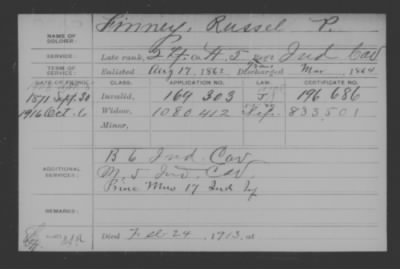 NAME OF SOLDIER: Finney, Russel P.
SERVICE: Late rank, Pt. Co. H. 5 Reg't Ind Cav
TERM OF SERVICE: Enlisted Aug 17, 1862 Discharged Mar, 1864
DATE OF FILING. CLASS. APPLICATION NO. LAW. CERTIFICATE NO.
Sept. 30 Invalid, 169 303 G 196 686
1916 Oct. 6 Widow, 1080 412 833 501
Minor,
ADDITIONAL SERVICES: B 6 Ind. Cav
M. 5 Ind. Cav.
Prin. Mus 17 Ind Inf
REMARKS:
Died Feb 24, 1913, at